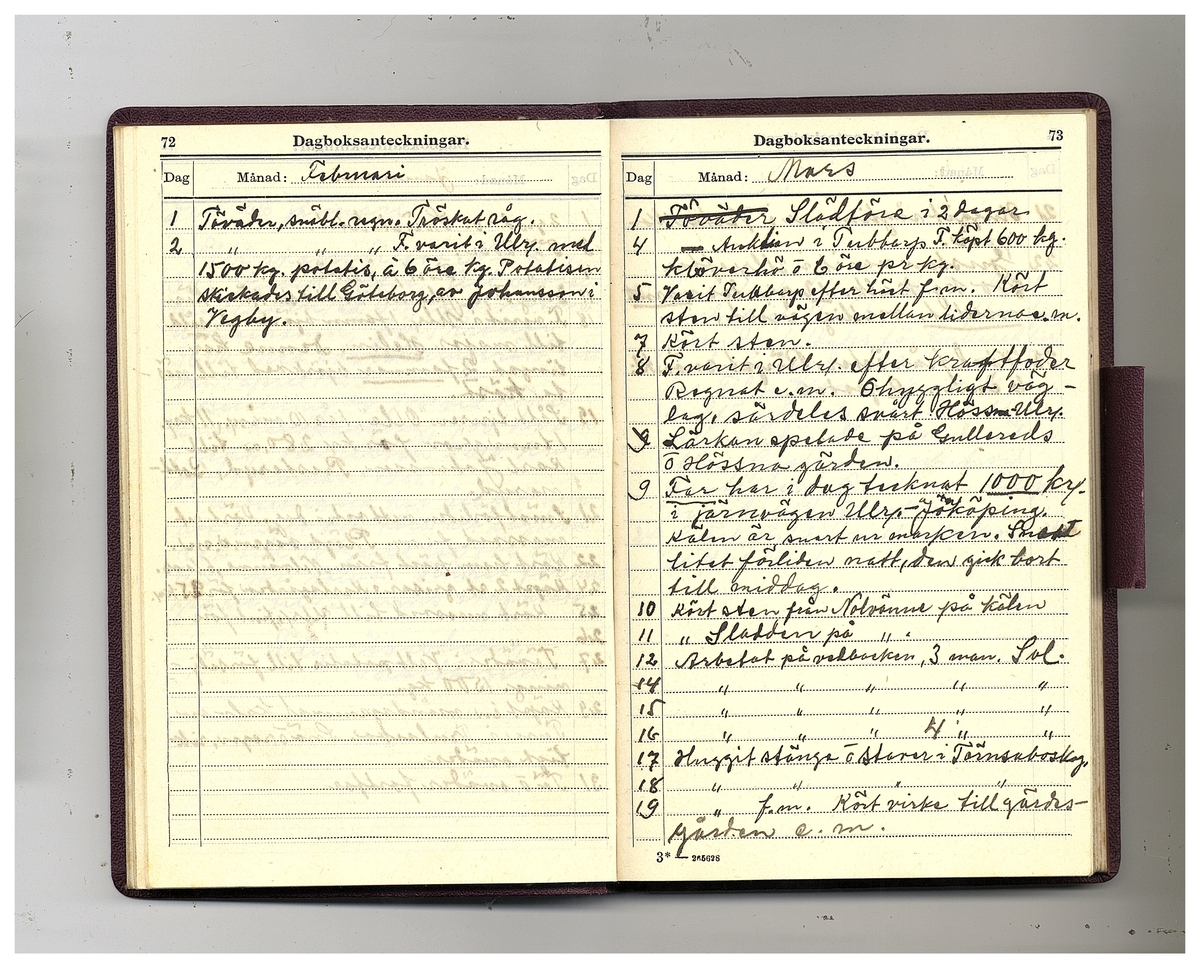 72
Dagboksanteckningar.
Dag Månad: Februari
1 Töväder, snöbl. regn. Tröskat råg.
2 " " " F. varit i Ulr. med
1500 kg. potatis, à 6 öre kg. Potatisen
skickades till Göteborg, av Johansson i
Vegby.
Dagboksanteckningar.
73
Dag Månad: Mars
1 Töväder Slädföre i 2 dagar
4 — Auktion i Tubbarp F. köpt 600 kg.
klöverhö à 6 öre pr kg.
5 Varit Tubbarp efter höet f.m. Kört
sten till vägen mellan liderna e.m.
7 Kört sten.
8 F. varit i Ulr. efter kraftfoder
Regnat e.m. Ohyggligt väg-
lag, särdeles svårt Hössna Ulr.
9 Lärkan spelade på Gullereds
o Hössna gärden.
9 Far har i dag tecknat 1000 kr.
i järnvägen Ulr.-Jököping.
Kälen är snart ur marken. Snöat
litet förliden natt, den gick bort
till middag.
10 Kört sten från Nolvänne på kälen
11 " Sladden på " .
12 Arbetat på vedbacken, 3 man. Sol.
14 " " " " "
15 " " " " "
16 " " " 4 " "
17 Huggit stänge o Staver i Törnsaboskog.
18 " " " "
19 " f.m. Kört virke till gärdes-
gården e.m.
3* — 265628